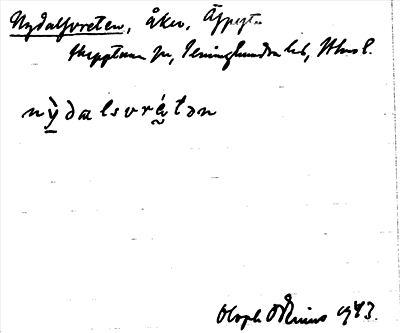 Nydalsvreten, åker, Äspgt..
Skepptuna sn, Seminghundra hd, Sthms l.
nỳdalsvrétən
Oloph Odenius 1943.